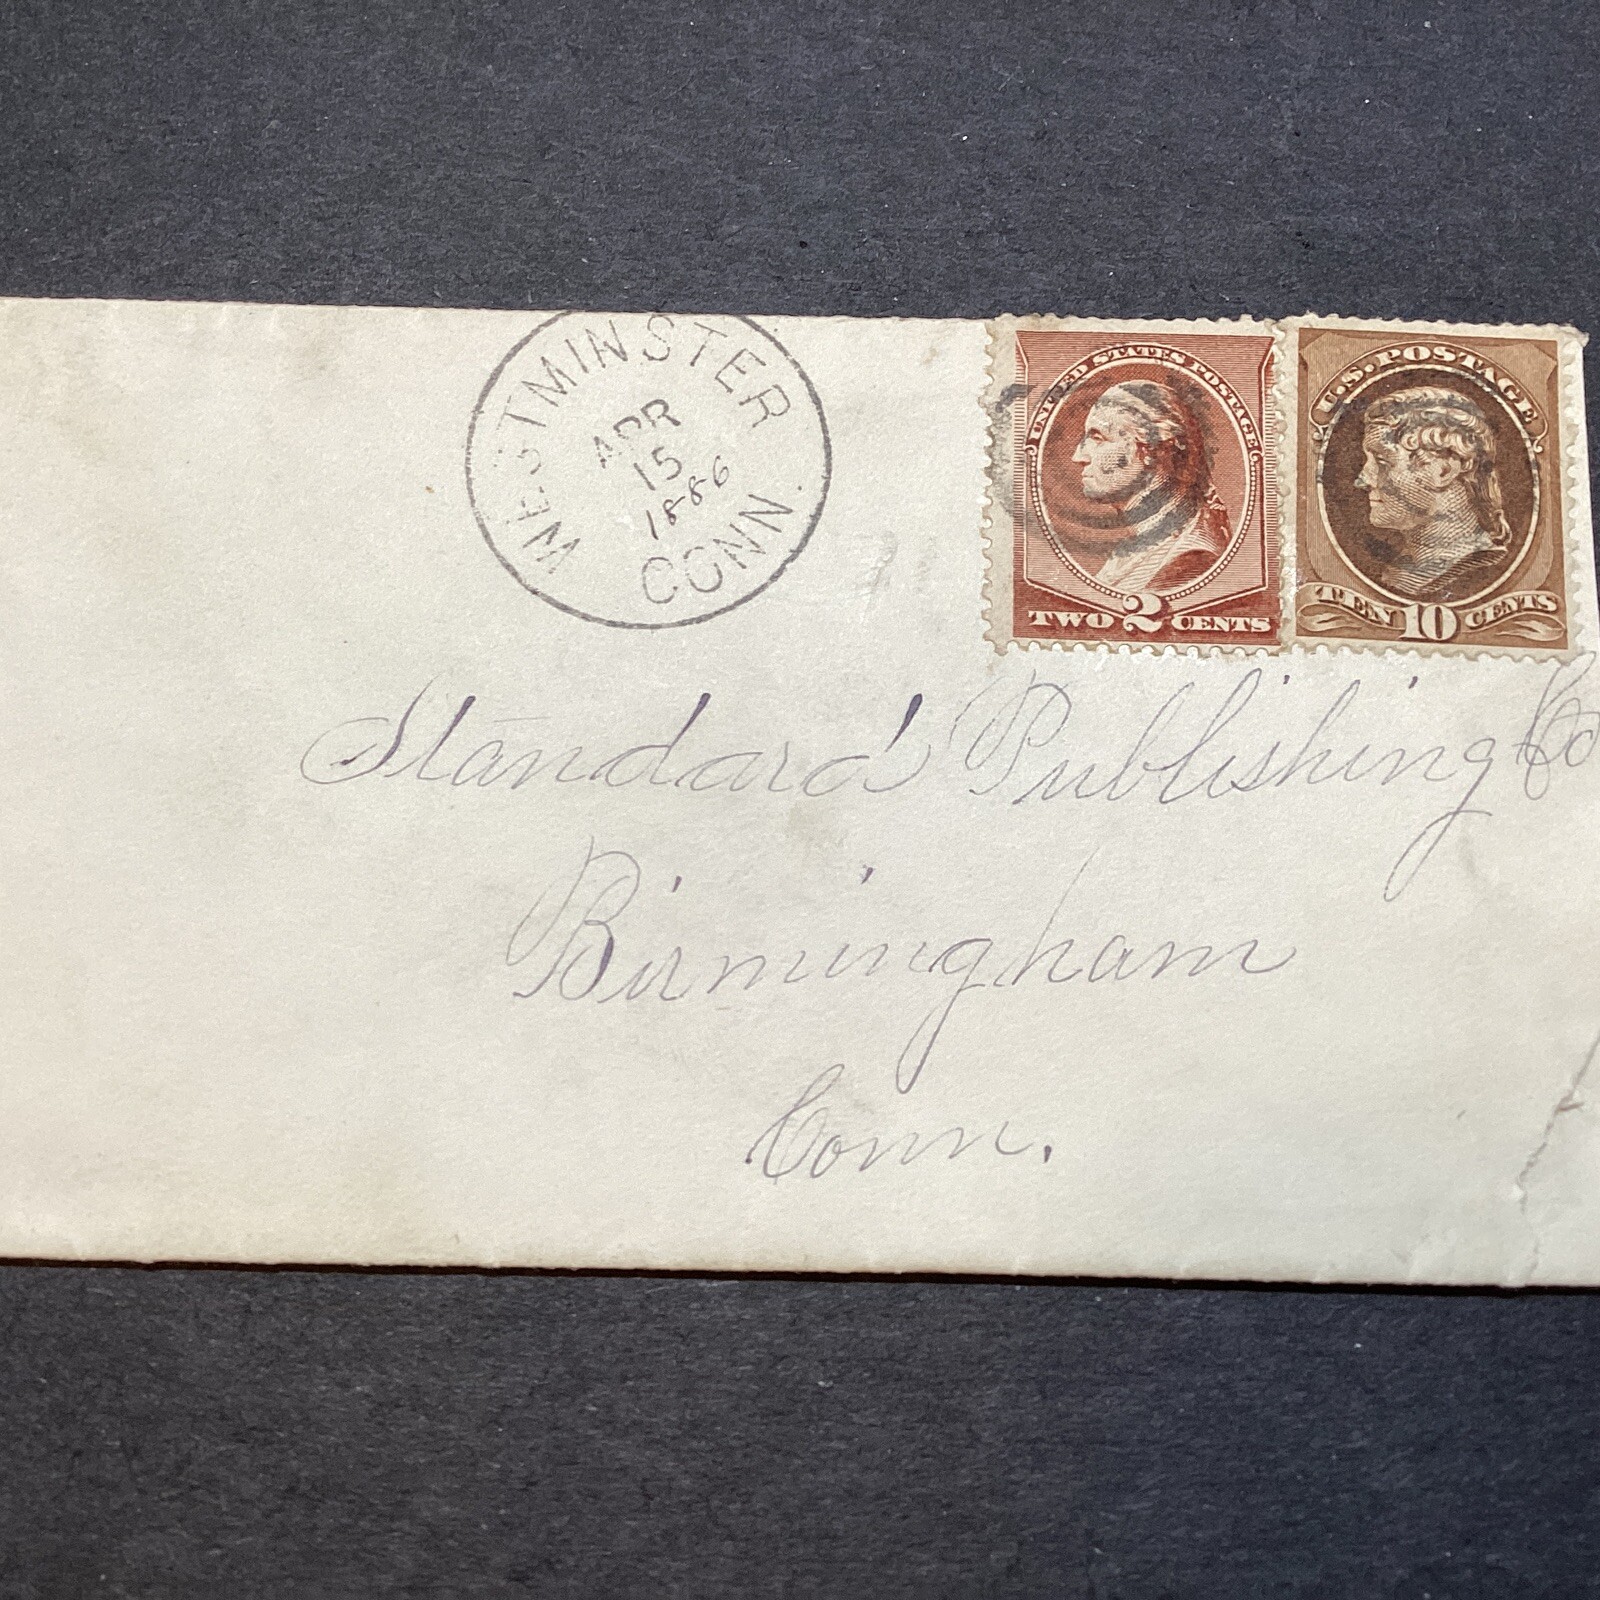 WESTMINSTER
APR
15
1886
CONN.
UNITED STATES POSTAGE
TWO 2 CENTS
U.S. POSTAGE
TEN 10 CENTS
Standard Publishing Co
Birmingham
Conn.